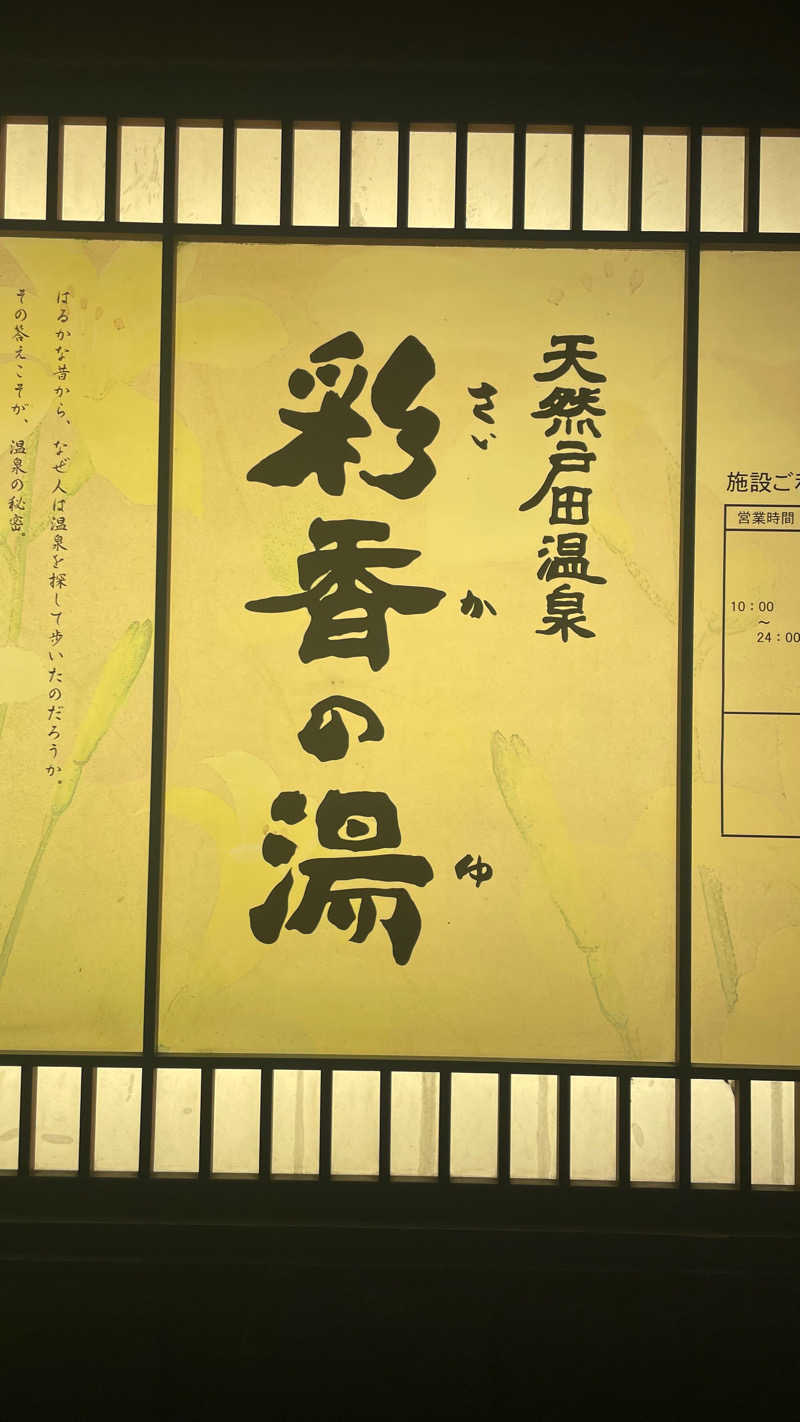 施設ご
営業時間
10:00
～
24:00
天然戸田温泉
彩香の湯
さい
か
ゆ
はるかな昔から、なぜ人は温泉を探して歩いたのだろうか。
その答えこそが、温泉の秘密。